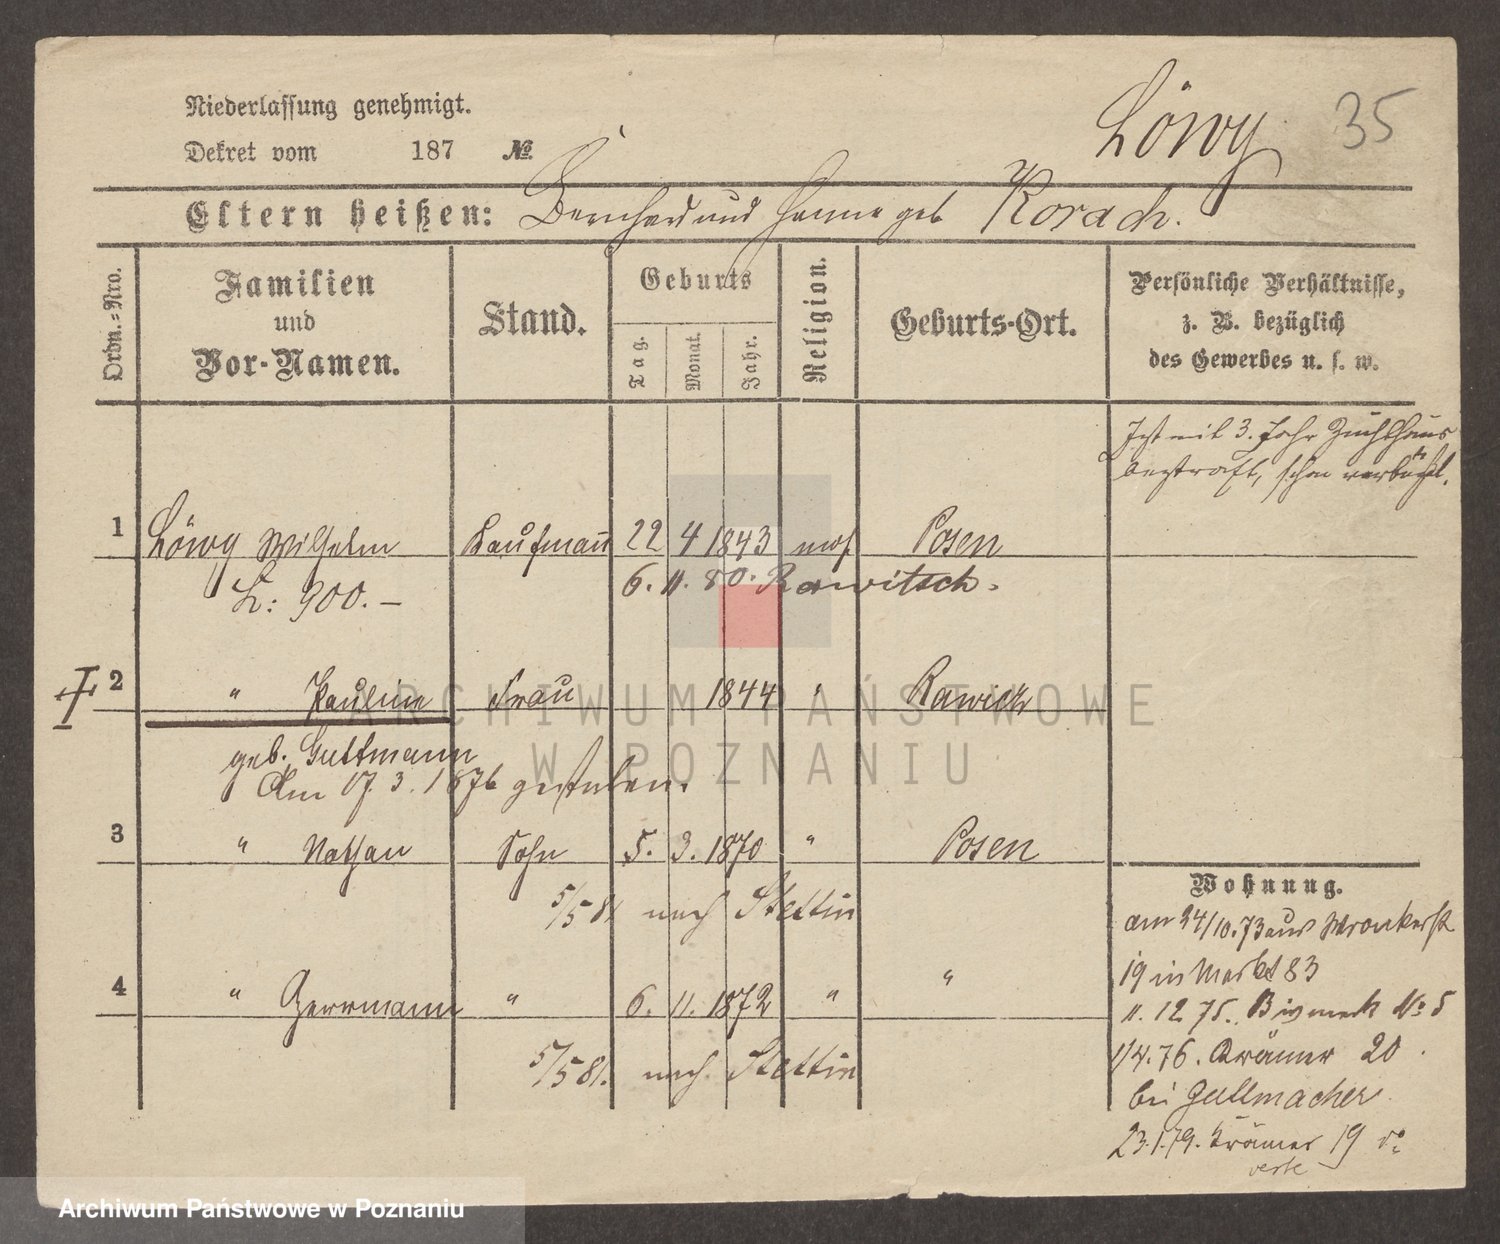 Niederlassung genehmigt.
Dekret vom 187 №
Löwy 35
Eltern heißen: Bernhard und Hanne geb Korach.
Ordn.-Nro.
Familien
und
Vor-Namen.
Stand.
Geburts
Tag.
Monat.
Jahr.
Religion.
Geburts-Ort.
Persönliche Verhältnisse,
z. B. bezüglich
des Gewerbes u. s. w.
Ist mit 3. Jahr Zuchthaus
bestraft, schon verbüßt.
1 Löwy Wilhelm Kaufmann 22 4 1843 mos Posen
L: 900.— 6. 11. 80. Rawitsch.
2 " Pauline Frau 1844 " Rawicz
geb. Guttmann
Am 17. 3. 1876 gestorben.
3 " Nathan Sohn 5. 3. 1870 " Posen
5/5 81 nach Stettin
4 " Herrmann " 6. 11. 1872 " "
5/5 81. nach Stettin
Wohnung.
am 24/10.73 aus Wronkerstr
19 in Markt 83
11. 12 75. Bismark No 5
1/4.76. Krämer 20
bei Guttmacher
23.1.79. Krämer 19
verte
ARCHIWUM PAŃSTWOWE
W POZNANIU
Archiwum Państwowe w Poznaniu